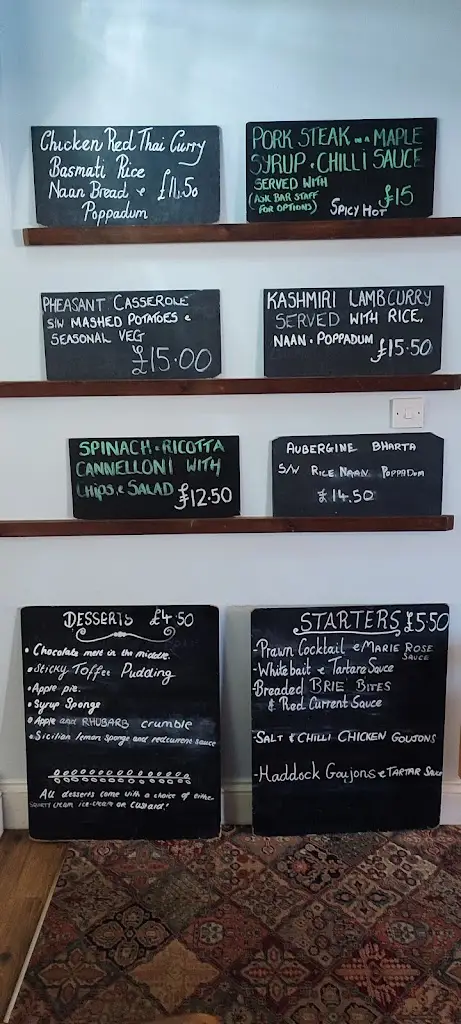 Chicken Red Thai Curry
Basmati Rice
Naan Bread & £11.50
Poppadum
PORK STEAK IN A MAPLE
SYRUP & CHILLI SAUCE
SERVED WITH
(ASK BAR STAFF
FOR OPTIONS) SPICY HOT £15
PHEASANT CASSEROLE
S/W MASHED POTATOES &
SEASONAL VEG
£15.00
KASHMIRI LAMB CURRY
SERVED WITH RICE,
NAAN & POPPADUM £15.50
SPINACH & RICOTTA
CANNELLONI WITH
Chips & SALAD £12.50
AUBERGINE BHARTA
S/W RICE NAAN POPPADUM
£14.50
DESSERTS £4.50
• Chocolate melt in the middle.
• Sticky Toffee Pudding
• Apple pie.
• Syrup Sponge
• Apple and RHUBARB crumble
• Sicilian lemon sponge and redcurrent sauce
All desserts come with a choice of either
squirty cream ice-cream or custard!
STARTERS £5.50
- Prawn Cocktail & MARIE ROSE
SAUCE
- Whitebait & Tartare Sauce
- Breaded BRIE BITES
& Red Currant Sauce
- SALT & CHILLI CHICKEN GOUJONS
- Haddock Goujons & TARTAR SAUCE